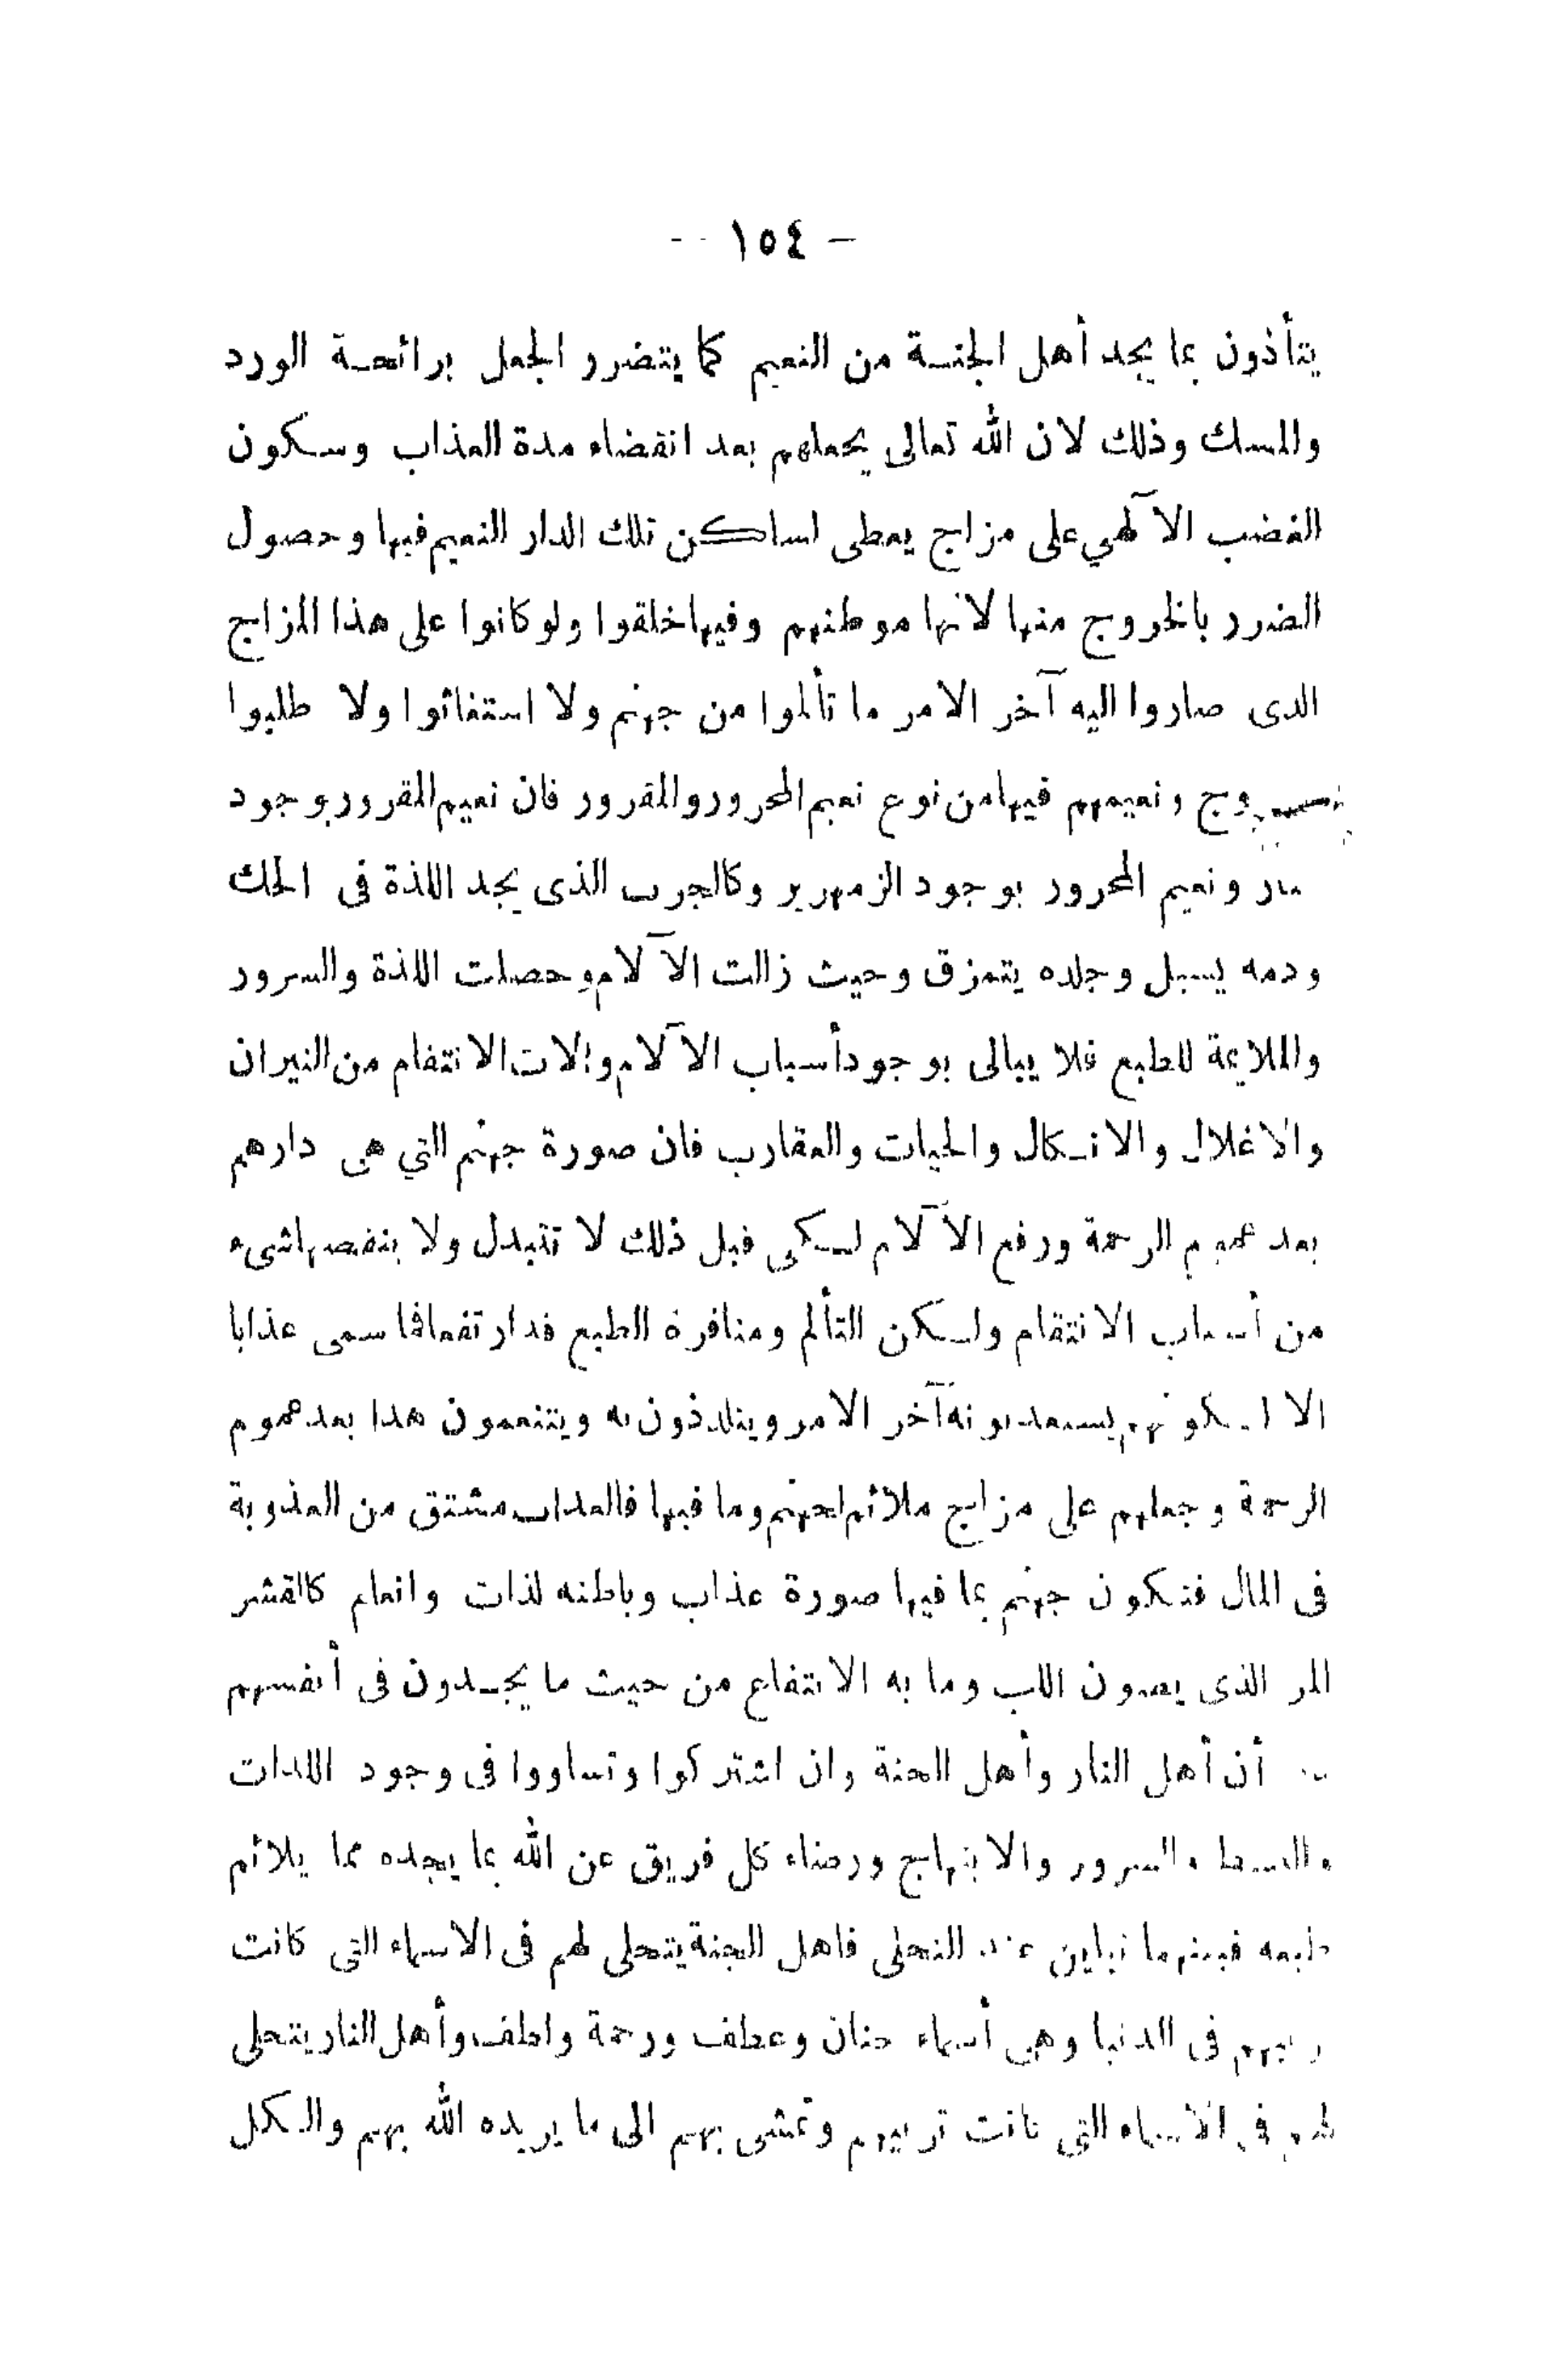 – ١٥٤ –
يتأذون بما يجد أهل الجنة من النعيم كما يتضرر الجعل برائحة الورد
والمسك وذلك لان الله تعالى يجعلهم بعد انقضاء مدة العذاب وسكون
الغضب الآلهي على مزاج يعطى لساكن تلك الدار النعيم فيها وحصول
الضرر بالخروج منها لانها موطنهم وفيها خلقوا ولو كانوا على هذا المزاج
الذى صاروا اليه آخر الامر ما تألموا من جهنم ولا استغاثوا ولا طلبوا
ونعيمهم فيها من نوع نعيم المحرور والمقرور فان نعيم المقرور بوجود
ونعيم المحرور بوجود الزمهرير وكالجرب الذى يجد اللذة فى الحك
ودمه يسيل وجلده يتمزق وحيث زالت الآلام وحصلت اللذة والسرور
والملايمة للطبع فلا يبالى بوجود أسباب الآلام والات الانتقام من النيران
والاغلال والانكال والحيات والعقارب فان صورة جهنم التي هى دارهم
بعد عموم الرحمة ورفع الآلام لهى قبل ذلك لا تتبدل ولا ينقصها شىء
من أسباب الانتقام ولكن التألم ومنافرة الطبع قد ارتفعا فما سمى عذابا
الا لكونهم يستعذبونه آخر الامر ويتلذذون به ويتنعمون هذا بعد عموم
الرحمة وجعلهم على مزاج ملائم لجهنم وما فيها فالعذاب مشتق من العذوبة
فى المال فتكون جهنم بما فيها صورة عذاب وباطنه لذات وانعام كالقشر
المر الذى يصون اللب وما به الانتفاع من حيث ما يجدون فى أنفسهم
أن أهل النار وأهل الجنة وان اشتركوا وتساووا فى وجود اللذات
والبسط والسرور والابتهاج ورضاء كل فريق عن الله بما يجده مما يلائم
طبعه فبينهما تباين عند التجلى فاهل الجنة يتجلى لهم فى الاسماء التى كانت
تربيهم فى الدنيا وهى أسماء حنان وعطف ورحمة ولطف وأهل النار يتجلى
لهم فى الاسماء التى كانت تربيهم وتمشى بهم الى ما يريده الله بهم والكل